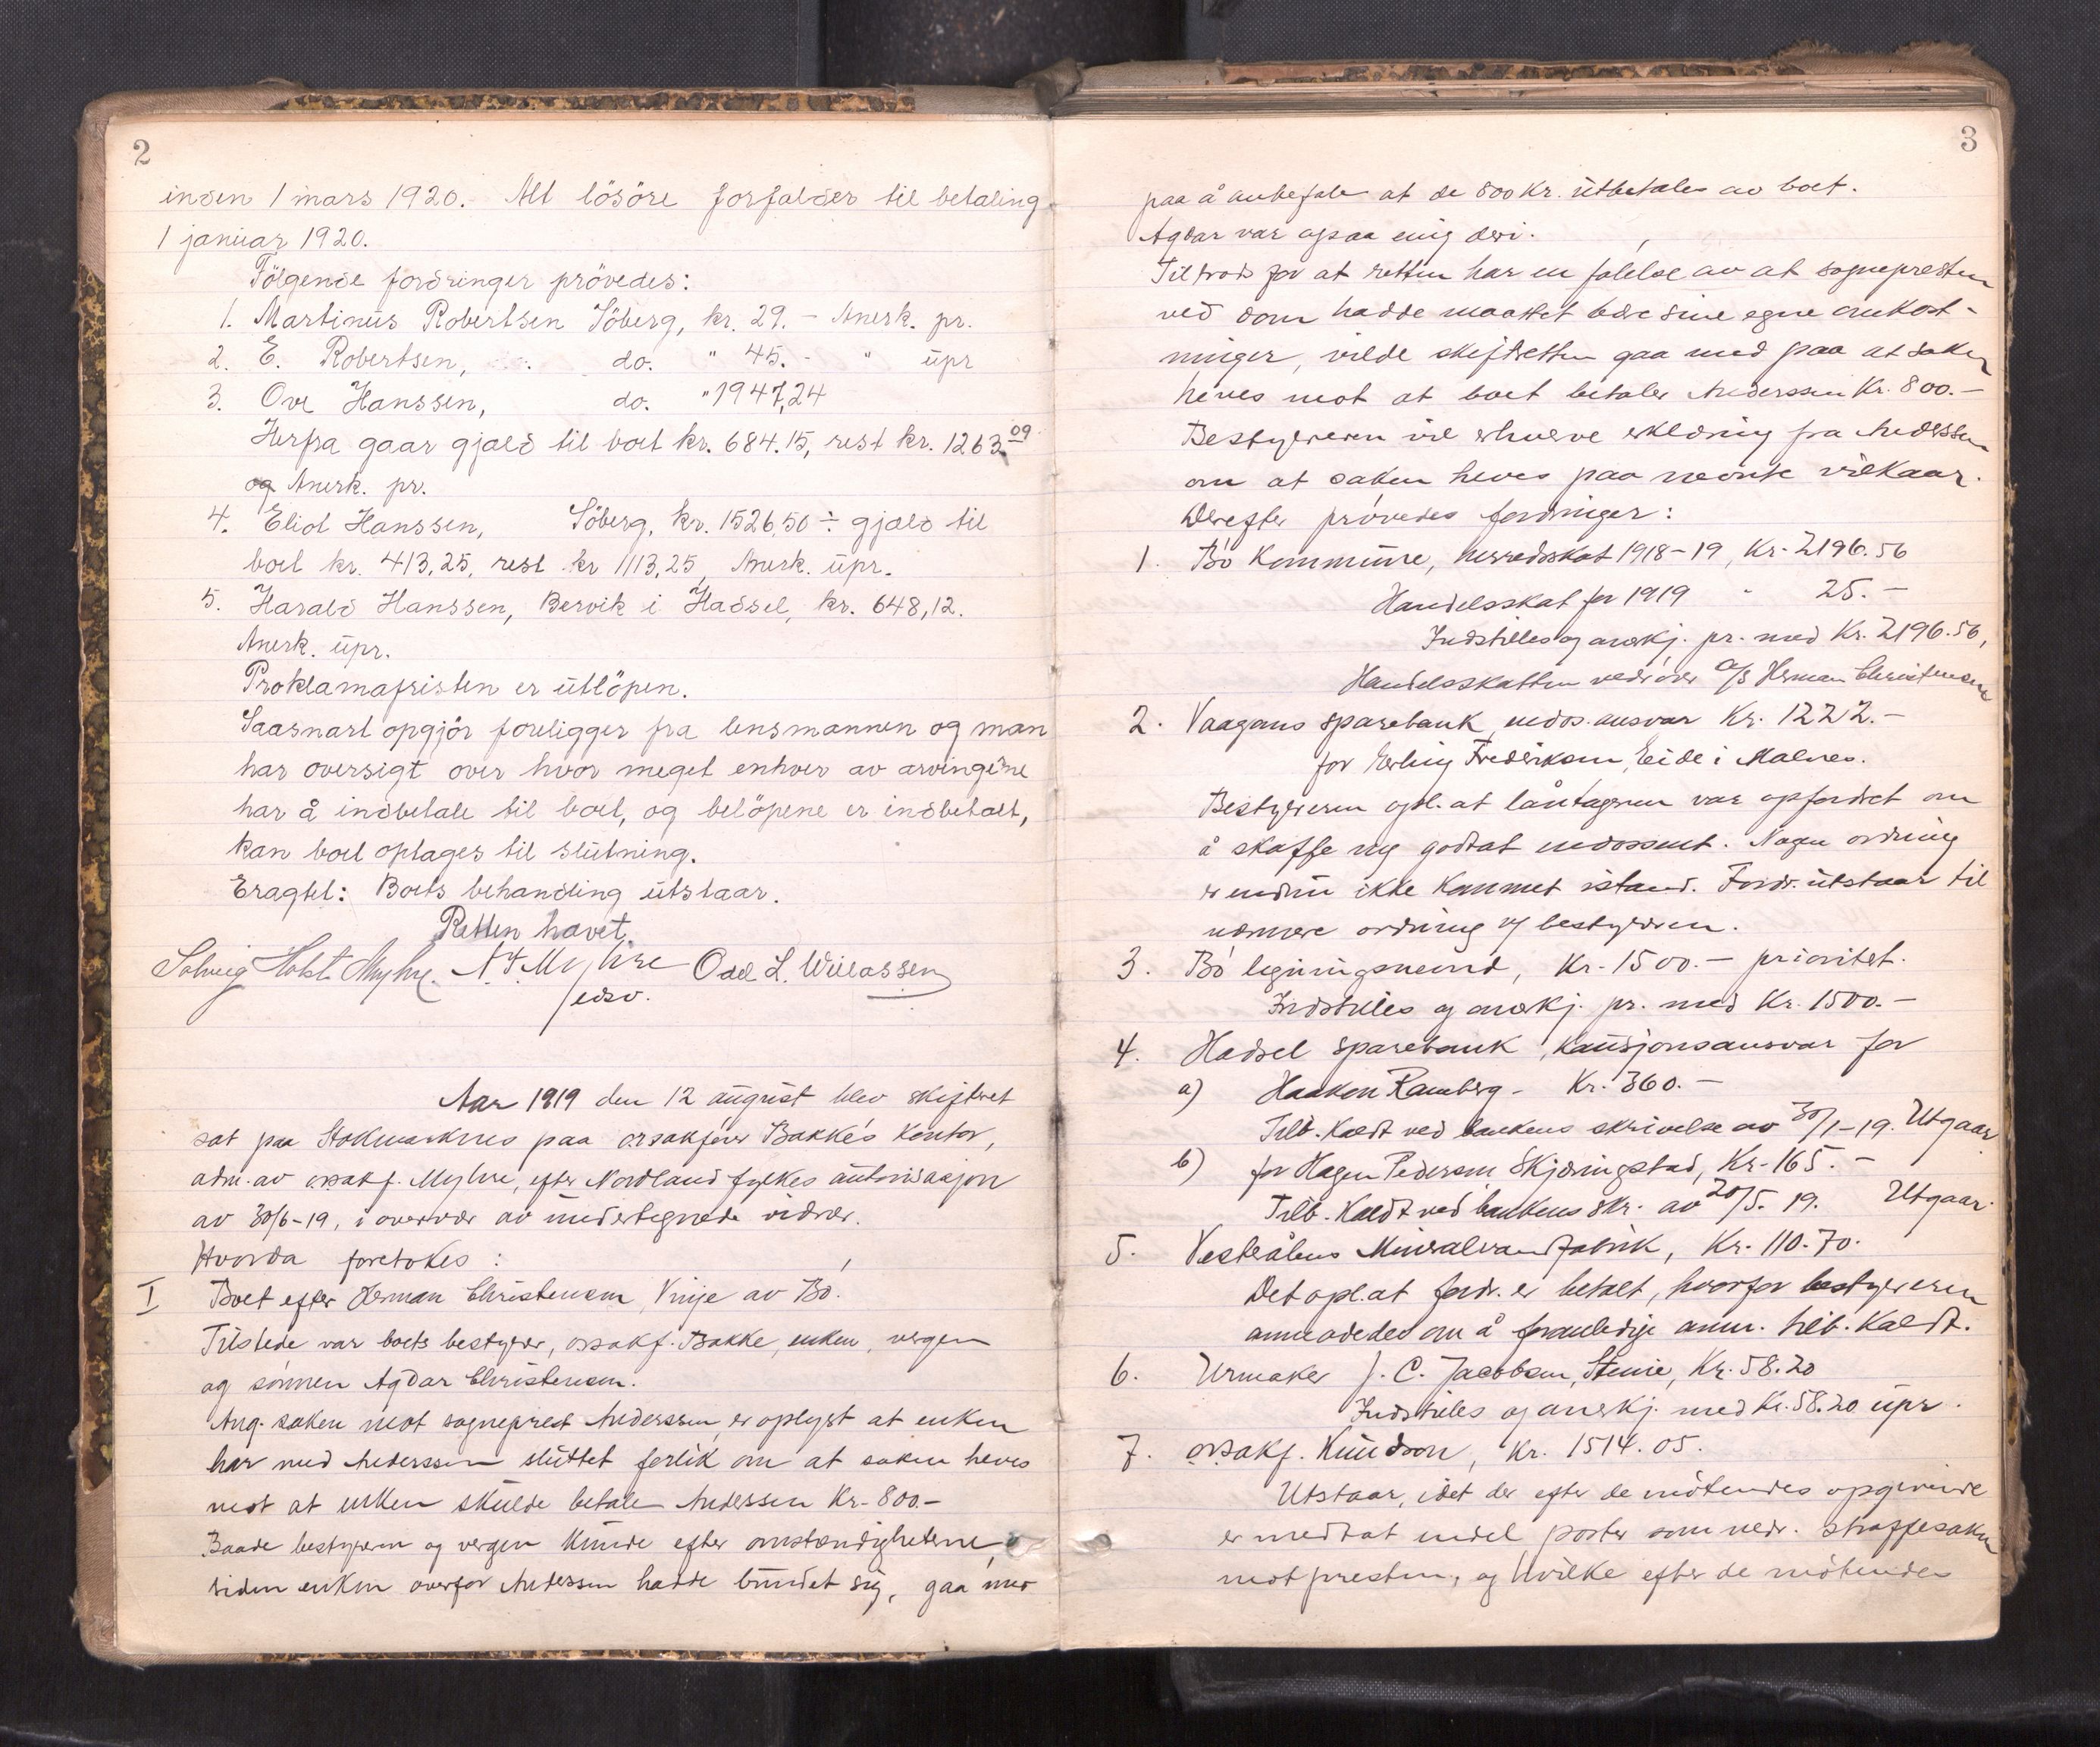 2
inden 1 mars 1920. Alt lösöre forfalder til betaling
1 januar 1920.
Fölgende fordringer prövedes:
1. Martinus Robertsen Söberg, kr. 29. - Anerk. pr.
2. E. Robertsen, do. " 45. - " upr
3. Ove Hanssen, do. " 1947,24
Herfra gaar gjæld til boet kr. 684.15, rest kr. 1263.09
og Anerk. pr.
4. Eliot Hanssen, Söberg, kr. 1526,50 ÷ gjæld til
boet kr. 413,25, rest kr 1113,25, Anerk. upr.
5. Harald Hanssen, Bervik i Hadsel, kr. 648,12.
Anerk. upr.
Proklamafristen er utlöpen.
Saasnart opgjör foreligger fra lensmannen og man
har oversigt over hvor meget enhver av arvingene
har å indbetale til boet, og belöpene er indbetalt,
kan boet optages til slutning.
Eragtet: Boets behandling utstaar.
Retten hævet.
Solveig Holst Myhre. N. F. Myhre Odd L. Willassen
edsv.
Aar 1919 den 12 august blev skifteret
sat paa Stokmarknes paa orsakfører Bakke's kontor,
adm. av orsakf. Myhre, efter Nordland fylkes autorisasjon
av 30/6-19, i overvær av undertegnede vidner.
Hvorda foretokes:
I Boet efter Herman Christensen, Vinje av Bø.
Tilstede var boets bestyrer, orsakf. Bakke, enken, vergen
og sønnen Agdar Christensen.
Ang. saken mot sogneprest Anderssen, er oplyst at enken
har med Anderssen sluttet forlik om at saken heves
mot at enken skulde betale Anderssen Kr. 800.-
Baade bestyreren og vergen kunde efter omstændigheterne,
siden enken overfor Anderssen hadde bundet sig, gaa med
3
paa å anbefale at de 800 Kr. utbetales av boet.
Agdar var ogsaa enig deri.
Tiltrods for at retten har en følelse av at sognepresten
ved dom hadde maattet bære sine egne omkost-
ninger, vilde skifteretten gaa med paa at saken
heves mot at boet betaler Anderssen Kr. 800.-
Bestyreren vil erhverve erklæring fra Anderssen
om at saken heves paa nævnte vilkaar.
Derefter prøvedes fordringer:
1. Bø Kommune, herredsskat 1918-19, Kr. 2196.56
Handelsskat for 1919 " 25.-
Indstilles og anerkj. pr. med Kr. 2196.56,
Handelsskatten vedrører A/S Herman Christensen
2. Vaagans sparebank, endos. ansvar Kr. 1222.-
for Erling Fredriksen, Eide i Malnes.
Bestyreren opl. at låntageren var opfordret om
å skaffe ny godtat endossent. Nogen ordning
er endnu ikke kommet istand. Fordr. utstaar til
nærmere ordning v/ bestyreren.
3. Bø ligningsnevnd, Kr. 1500.- prioritet.
Indstilles og anerkj. pr. med Kr. 1500.-
4. Hadsel sparebank, kausjonsansvar for
a) Haakon Ramberg - Kr. 360.-
Tilb. kaldt ved bankens skrivelse av 30/1-19. Utgaar
b) for Hagen Pedersen Skjørringstad, Kr. 165.-
Tilb. kaldt ved bankens skr. av 20/5. 19. Utgaar.
5. Vesterålens Mineralvandfabrik, Kr. 110.70.
Det opl. at fordr. er betalt, hvorfor bestyreren
anmodedes om å foranledige anm. tilb. kaldt.
6. Urmaker J. C. Jacobsen, Steine, Kr. 58.20
Indstilles og anerkj. med Kr. 58.20 upr.
7. orsakf. Knudson, Kr. 1514.05.
Utstaar, idet der efter de møtendes opgivende
er medtat endel poster som vedr. straffesaken
mot presten, og hvilke efter de møtendes